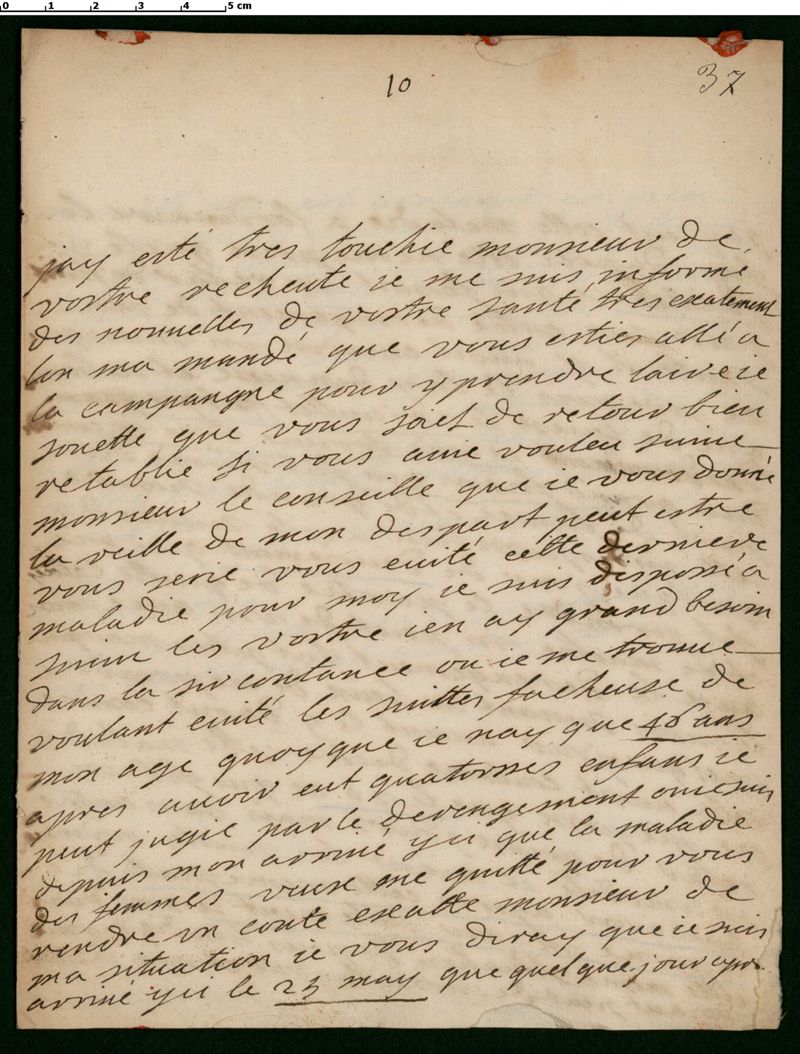 0 1 2 3 4 5 cm
10
37
jay esté tres touchie monsieur de
vostre recheute ie me suis informé
des nouuelles de vostre santé tres exatement
lon ma mandé que vous esties allé a
la campangne pour y prendre laire ie
souette que vous soiet de retour bien
retablie si vous auie vouleu suiure
monsieur le conseille que ie vous donné
la veille de mon despart peut estre
vous serie vous euité cette derniere
maladie pour moy je suis disposse a
suiure les vostre ien ay grand besoin
dans la sirconstance ou ie me trouue
voulant euité les suittes facheuse de
mon age quoy que ie nay que 46 ans
apres auoir eut quatorses enfans ie
peut jugie par le derengement ou ie suis
depuis mon arriué yci que la maladie
des femmes veuse me quitté pour vous
rendre vn conte exatte monsieur de
ma situation ie vous diray que ie suis
arriué yci le 23 may que quel que jour apres